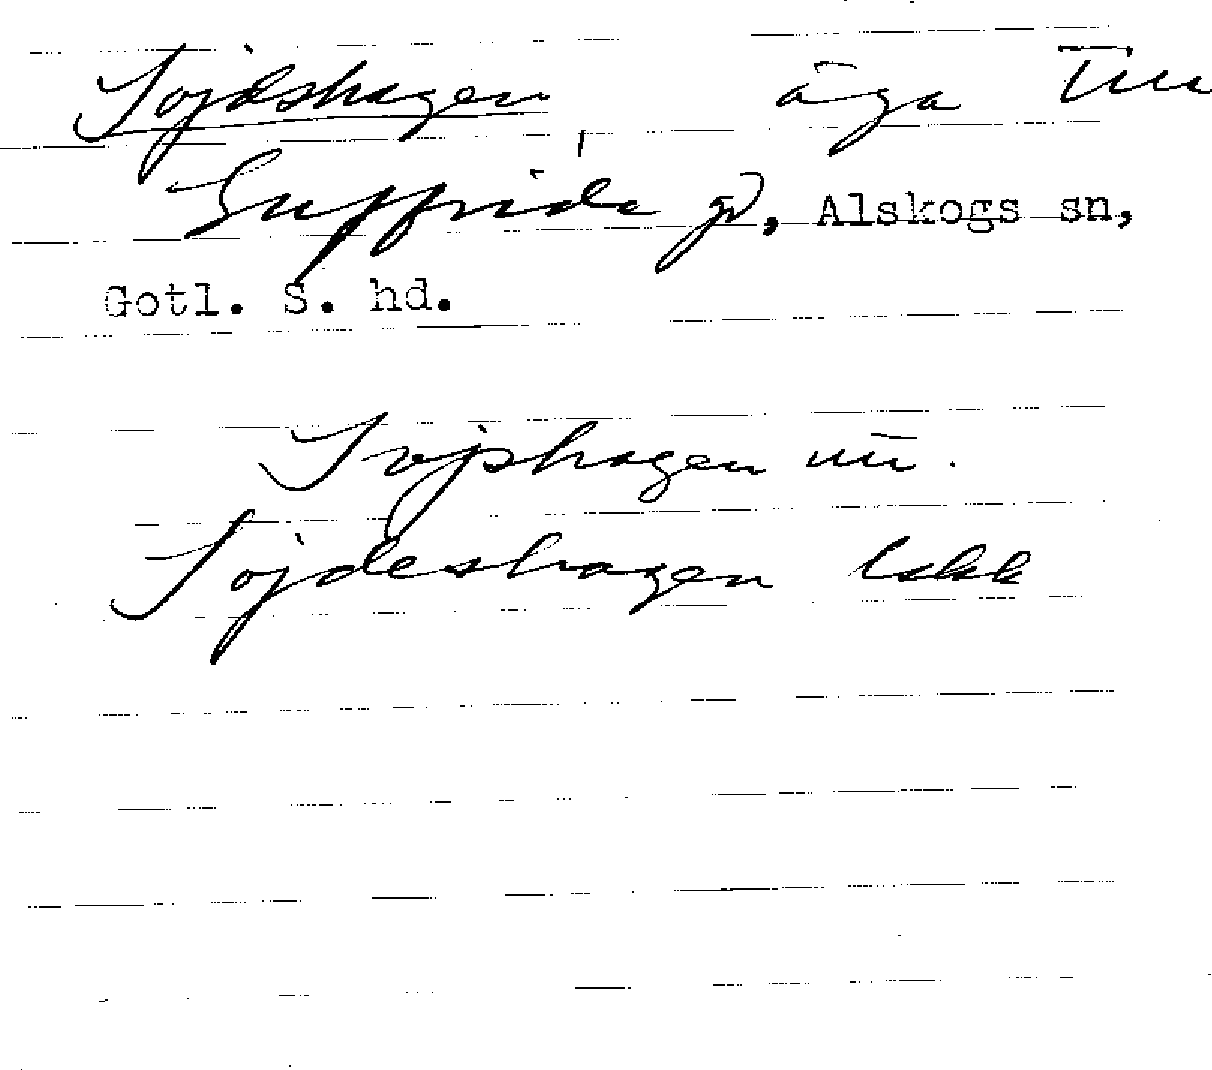 Sojdshagen äga till
Guffride gd, Alskogs sn,
Gotl. S. hd.
Sojshagen
Sojdeshagen Lskk